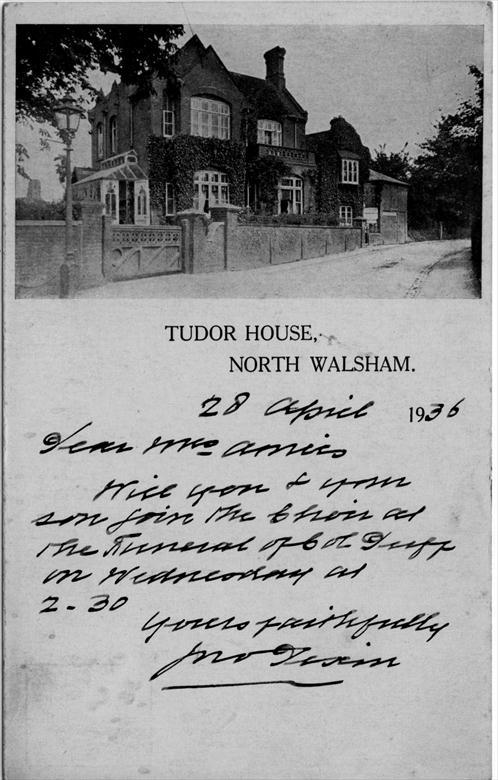 TUDOR HOUSE,
NORTH WALSHAM.
28 April 1936
Dear Mrs Amies
Will you & your
son join the Choir at
the Funeral of Col Duff
on Wednesday at
2-30
Yours faithfully
Jno Dixon